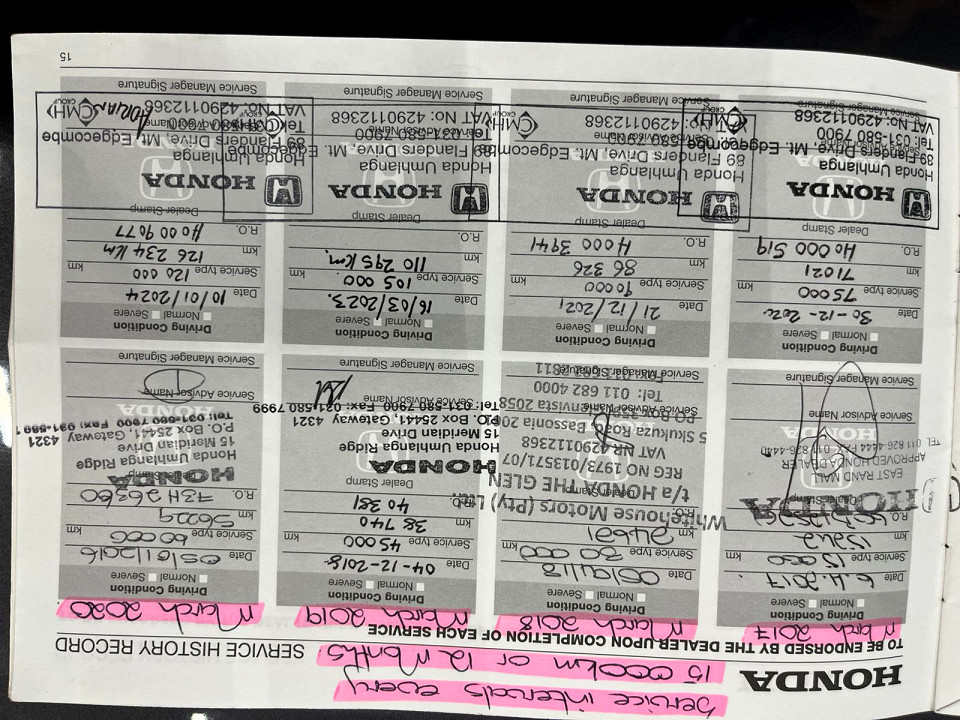 HONDA
Service intervals every
15 000km or 12 months.
SERVICE HISTORY RECORD
TO BE ENDORSED BY THE DEALER UPON COMPLETION OF EACH SERVICE
March 2017
Driving Condition
Normal Severe
Date 6.4.2017
Service type 15 000 km
km
R.O.
Dealer Stamp
HONDA
EAST RAND MALL
APPROVED HONDA DEALER
Service Advisor Name
Service Manager Signature
March 2018
Driving Condition
Normal Severe
Date
Service type 30 000 km
km
R.O.
Whitehouse Motors (Pty) Ltd.
t/a HONDA THE GLEN
REG NO 1973/013571/07
VAT NO 4290112368
Service Advisor Name
Tel: 011 682 4000
Service Manager Signature
March 2019
Driving Condition
Normal Severe
Date 04-12-2018
Service type 45000 km
km 38 740
R.O. 40 381
Dealer Stamp
HONDA
Honda Umhlanga Ridge
15 Meridian Drive
P.O. Box 25441, Gateway 4321
Tel: 031-580 7900 Fax: 031-580 7999
Service Manager Signature
March 2020
Driving Condition
Normal Severe
Date
Service type 60 000 km
km 56229
R.O.
Dealer Stamp
HONDA
Honda Umhlanga Ridge
15 Meridian Drive
P.O. Box 25441, Gateway 4321
Service Advisor Name
Service Manager Signature
Driving Condition
Normal Severe
Date 30-12-2020
Service type 75000 km
km 71021
R.O. H0000 519
Dealer Stamp
HONDA
Honda Umhlanga
89 Flanders Drive, Mt. Edgecombe
Tel: 031-580 7900
VAT No: 4290112368
Service Manager Signature
Driving Condition
Normal Severe
Date 21/12/2021
Service type 90000 km
km 86 326
R.O. H000 3941
Dealer Stamp
HONDA
Honda Umhlanga
89 Flanders Drive, Mt. Edgecombe
Tel: 031-580 7900
VAT No: 4290112368
CMH GROUP
Service Manager Signature
Driving Condition
Normal Severe
Date 16/03/2023.
Service type 105 000 km
km 110 295 km.
R.O.
Dealer Stamp
HONDA
Honda Umhlanga
89 Flanders Drive, Mt. Edgecombe
Tel: 031-580 7900
VAT No: 4290112368
CMH GROUP
Service Manager Signature
Driving Condition
Normal Severe
Date 10/01/2024
Service type 120 000 km
km 126 234 km
R.O. H000 9077
Dealer Stamp
HONDA
Honda Umhlanga
89 Flanders Drive, Mt. Edgecombe
Tel: 031-580 7900
VAT No: 4290112368
CMH GROUP
Service Manager Signature
15